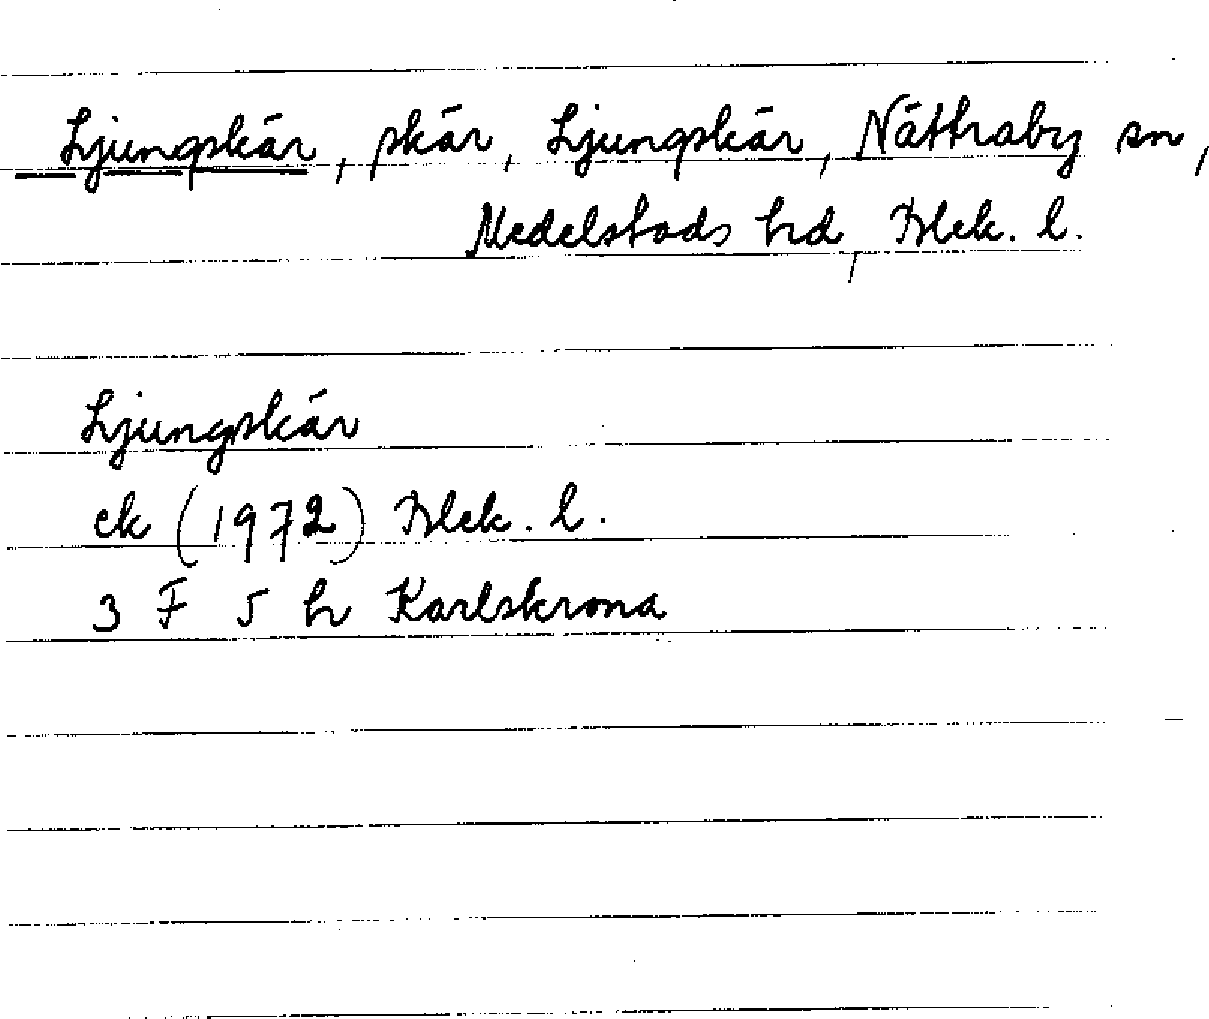 Ljungskär, skär, Ljungskär, Nättraby sn,
Medelstads hd, Blek. l.
Ljungskär
ek (1972) Blek. l.
3 F 5 h Karlskrona